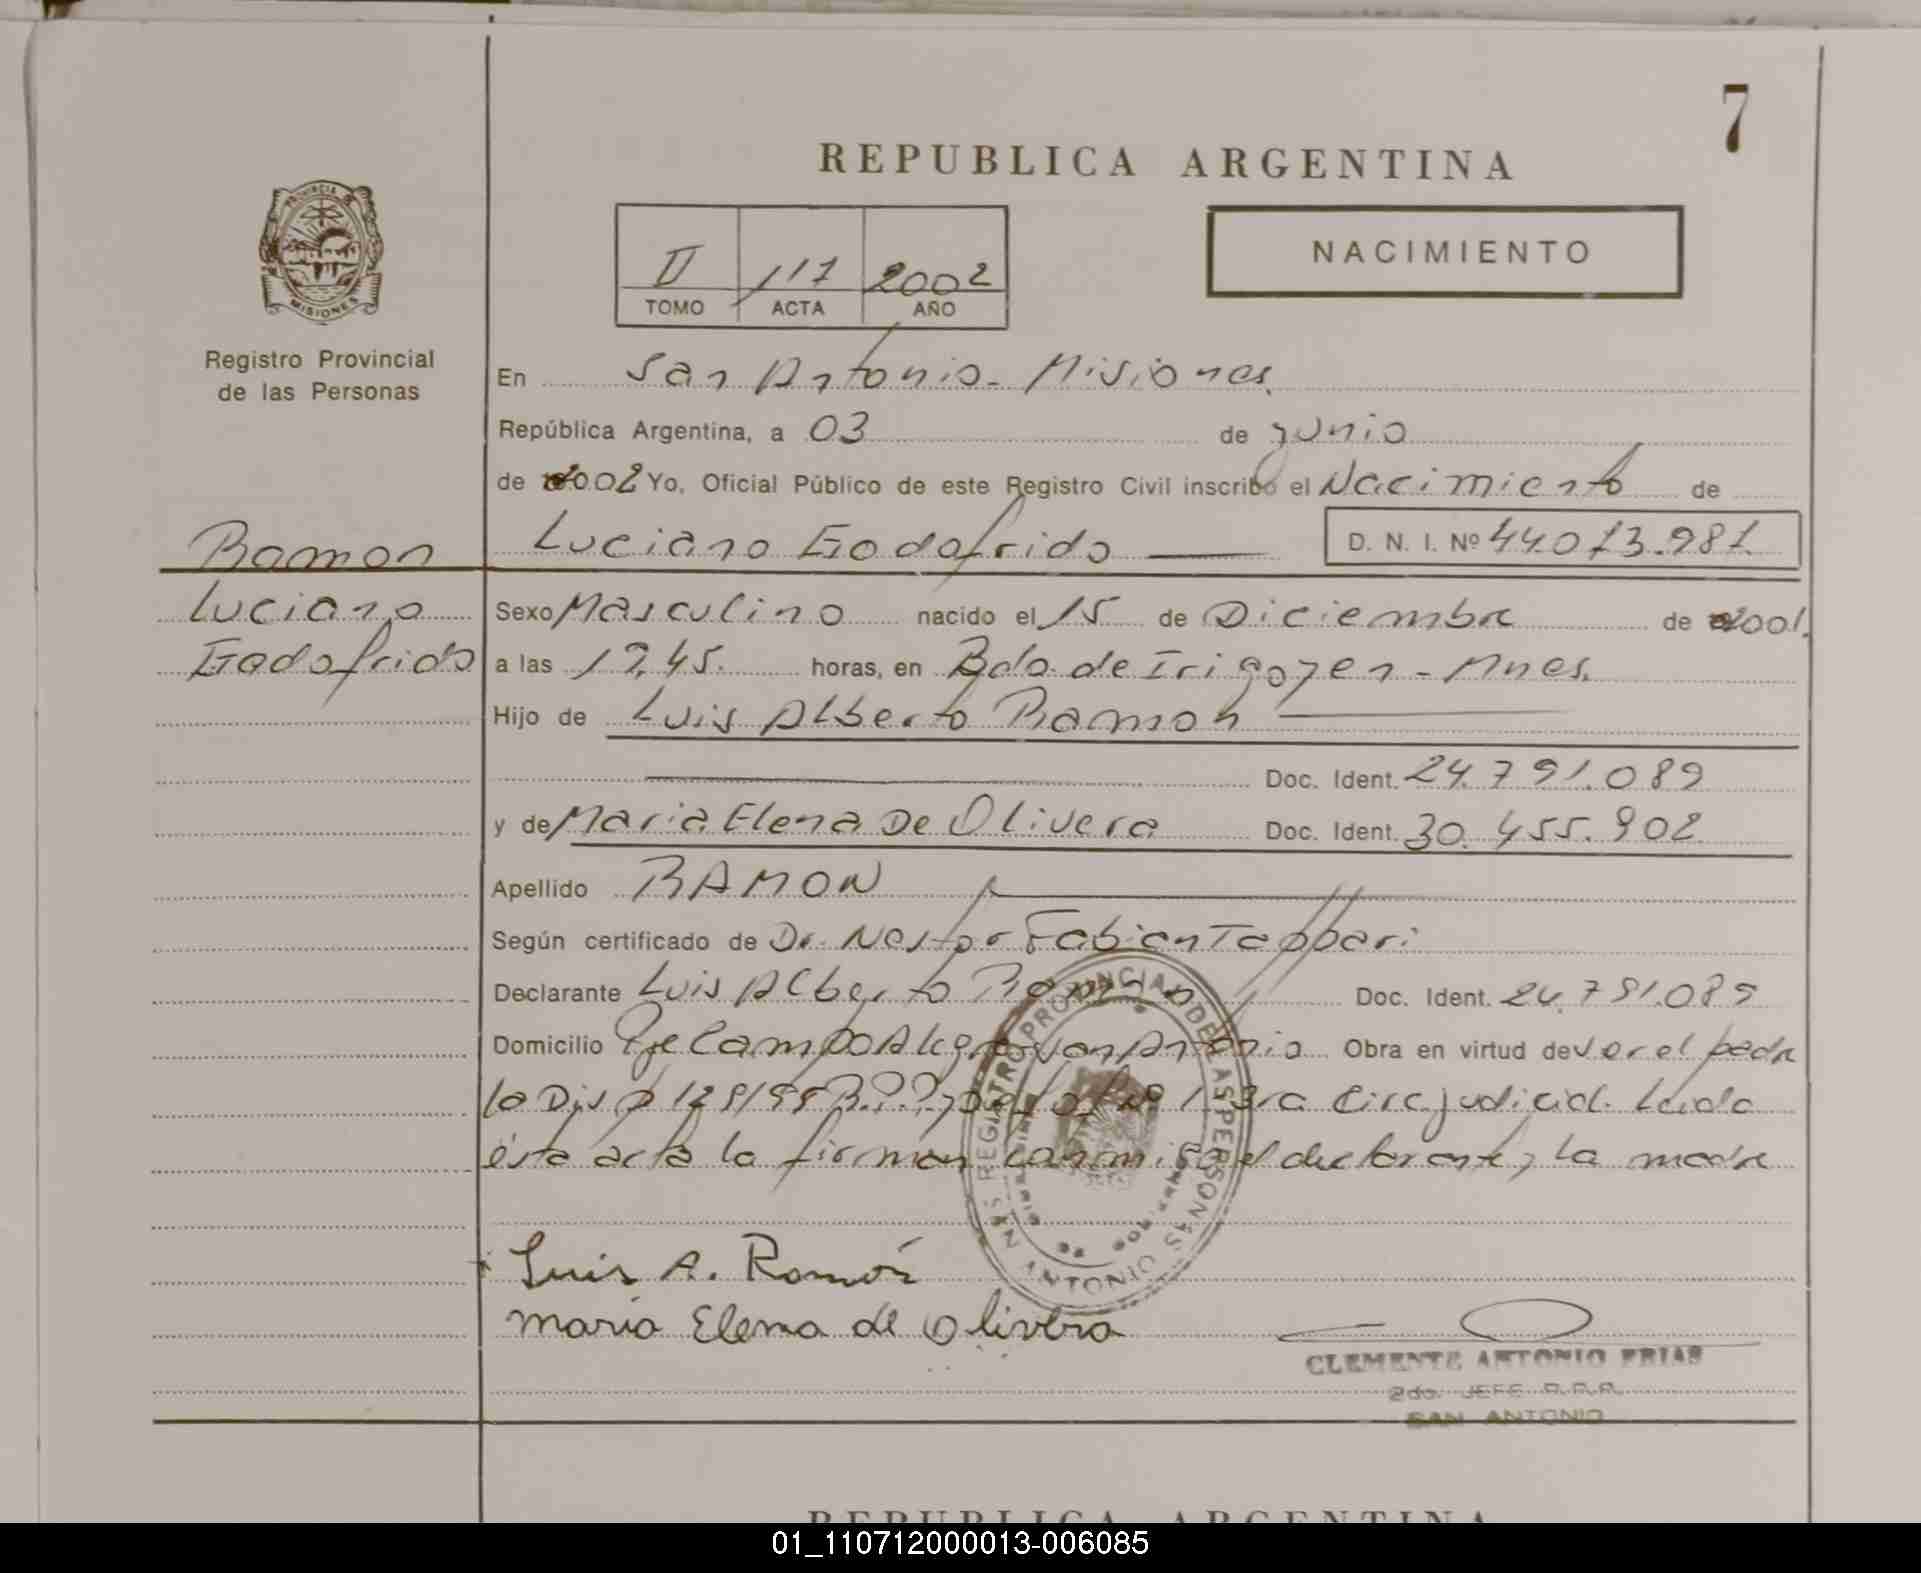 7
REPUBLICA ARGENTINA
PROVINCIA DE
MISIONES
Registro Provincial
de las Personas
II 117 2002
TOMO ACTA AÑO
NACIMIENTO
En San Antonio - Misiones
República Argentina, a 03 de junio
de 2002 Yo, Oficial Público de este Registro Civil inscribo el Nacimiento de
Ramon
Luciano Godofrido D. N. I. Nº 44.013.981.
Luciano
Godofrido
Sexo Masculino nacido el 15 de Diciembre de 2001.
a las horas, en Bdo. de Irigoyen - Mnes.
Hijo de Luis Alberto Ramon
Doc. Ident. 24.791.089
y de Maria Elena De Olivera Doc. Ident. 30.455.902
Apellido RAMON
Según certificado de Dr. Nestor Fabian Tappari
Declarante Luis Alberto Ramon Doc. Ident. 24.791.089
Domicilio Pje Campo Alegre San Antonio Obra en virtud de ser el padre
la Disp 129/99 1 3ra Circ. judicial. Leida
ésta acta la firman conmigo el declarante y la madre
Luis A. Ramón
maria Elena de Olivera
REGISTRO PROVINCIAL DE LAS PERSONAS
SAN ANTONIO
CLEMENTE ANTONIO FRIAS
2do. JEFE R.P.P.
SAN ANTONIO
REPUBLICA ARGENTINA
01_110712000013-006085